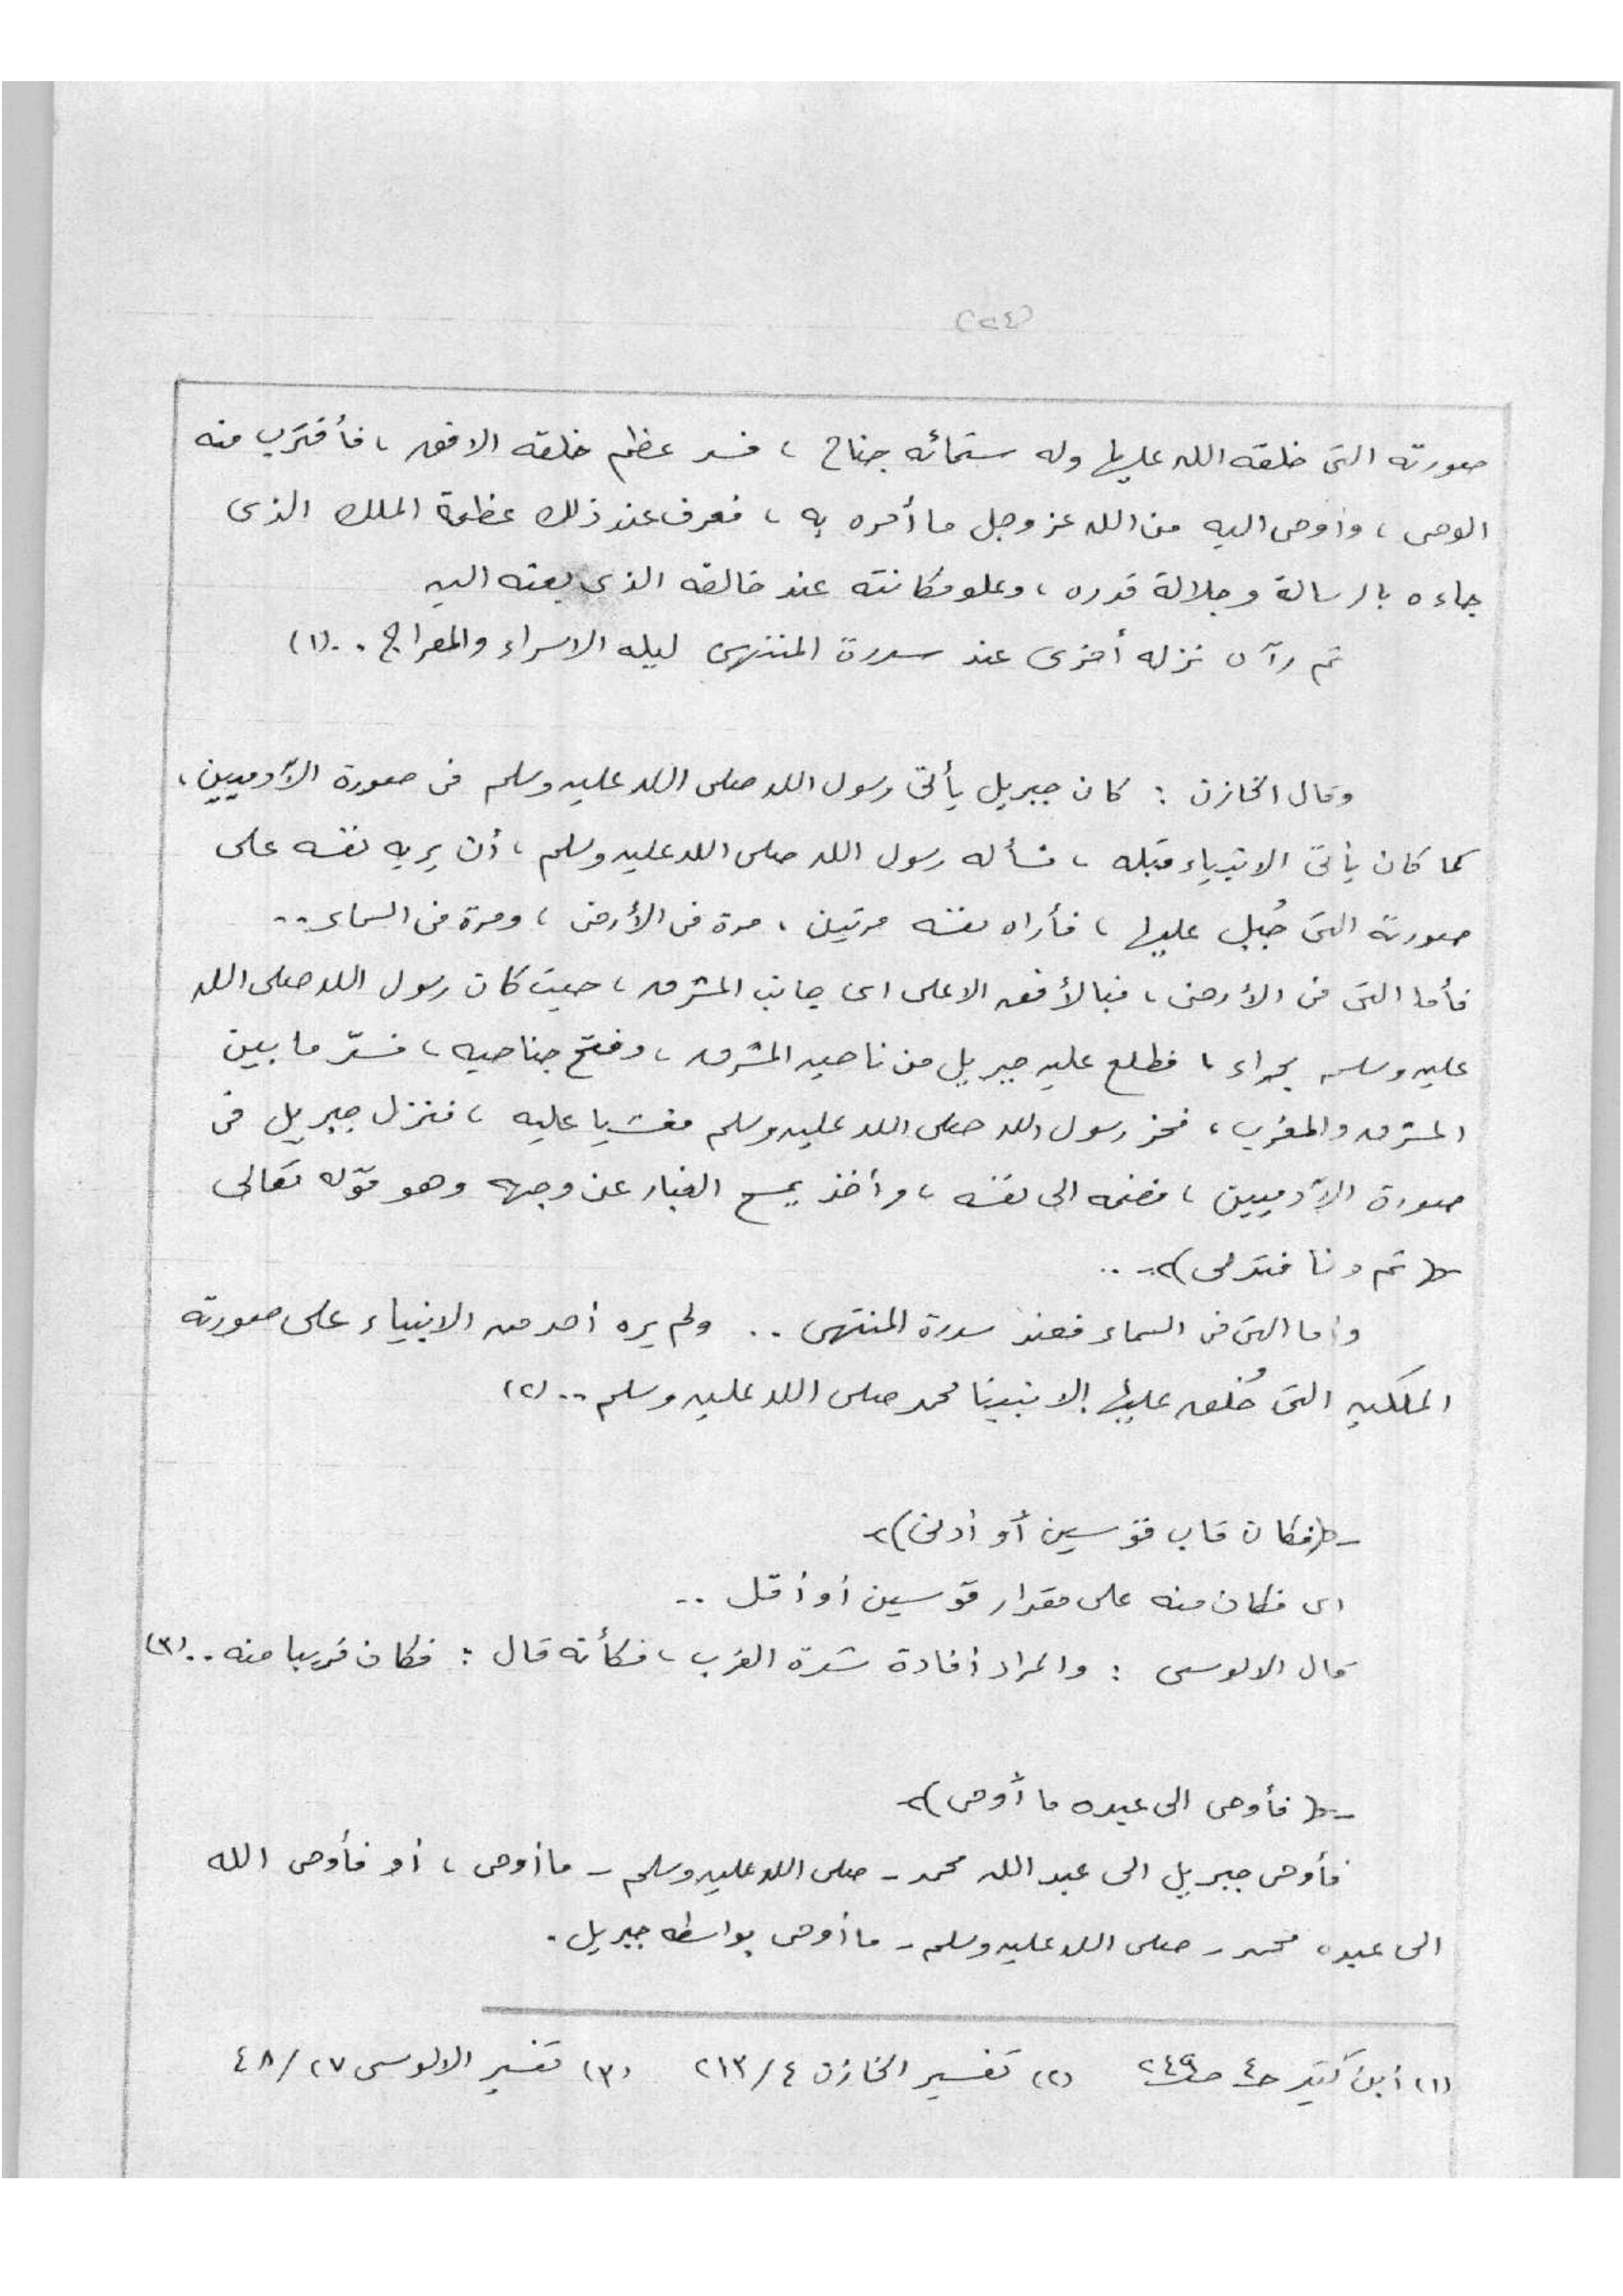 (٢٤)
صورته التى خلقه الله عليها وله ستمائه جناح ، فسد عظم خلقه الافق ، فأقترب منه
الوحى ، وأوحى اليه من الله عز وجل ما أمره به ، فعرف عند ذلك عظمة الملك الذى
جاءه بالرسالة وجلالة قدره ، وعلو مكانته عند خالقه الذى بعثه اليه
ثم رآه نزله أخرى عند سدرة المنتهى ليله الاسراء والمعراج .. (١)
وقال الخازن : كان جبريل يأتى رسول الله صلى الله عليه وسلم فى صورة الآدميين ،
كما كان يأتى الانبياء قبله ، فسأله رسول الله صلى الله عليه وسلم ، أن يريه نفسه على
صورته التى جُبل عليها ، فأراه نفسه مرتين ، مرة فى الأرض ، ومرة فى السماء ..
فأما التى فى الأرض ، فبالأفق الاعلى اى جانب المشرق ، حيث كان رسول الله صلى الله
عليه وسلم بحراء ، فطلع عليه جبريل من ناحيه المشرق ، وفتح جناحيه ، فسدّ ما بين
المشرق والمغرب ، فخر رسول الله صلى الله عليه وسلم مغشيا عليه ، فنزل جبريل فى
صورة الآدميين ، فضمه الى نفسه ، وأخذ يمسح الغبار عن وجهه وهو قوله تعالى
﴿ ثم دنا فتدلى ﴾ ..
وأما التى فى السماء فعند سدرة المنتهى .. ولم يره أحد من الانبياء على صورته
الملكيه التى خُلق عليها إلا نبينا محمد صلى الله عليه وسلم .. (٢)
﴿ فكان قاب قوسين أو أدنى ﴾
اى فكان منه على مقدار قوسين أو أقل ..
قال الالوسى : والمراد أفادة شدة القرب ، فكأنه قال : فكان قريبا منه .. (٣)
﴿ فأوحى الى عبده ما أوحى ﴾
فأوحى جبريل الى عبد الله محمد - صلى الله عليه وسلم - ما أوحى ، أو فأوحى الله
الى عبده محمد - صلى الله عليه وسلم - ما أوحى بواسطه جبريل .
(١) أبن كثير حـ٤ صـ٢٤٩ (٢) تفسير الخازن ٤/٢١٣ (٣) تفسير الالوسى ٢٧/٤٨